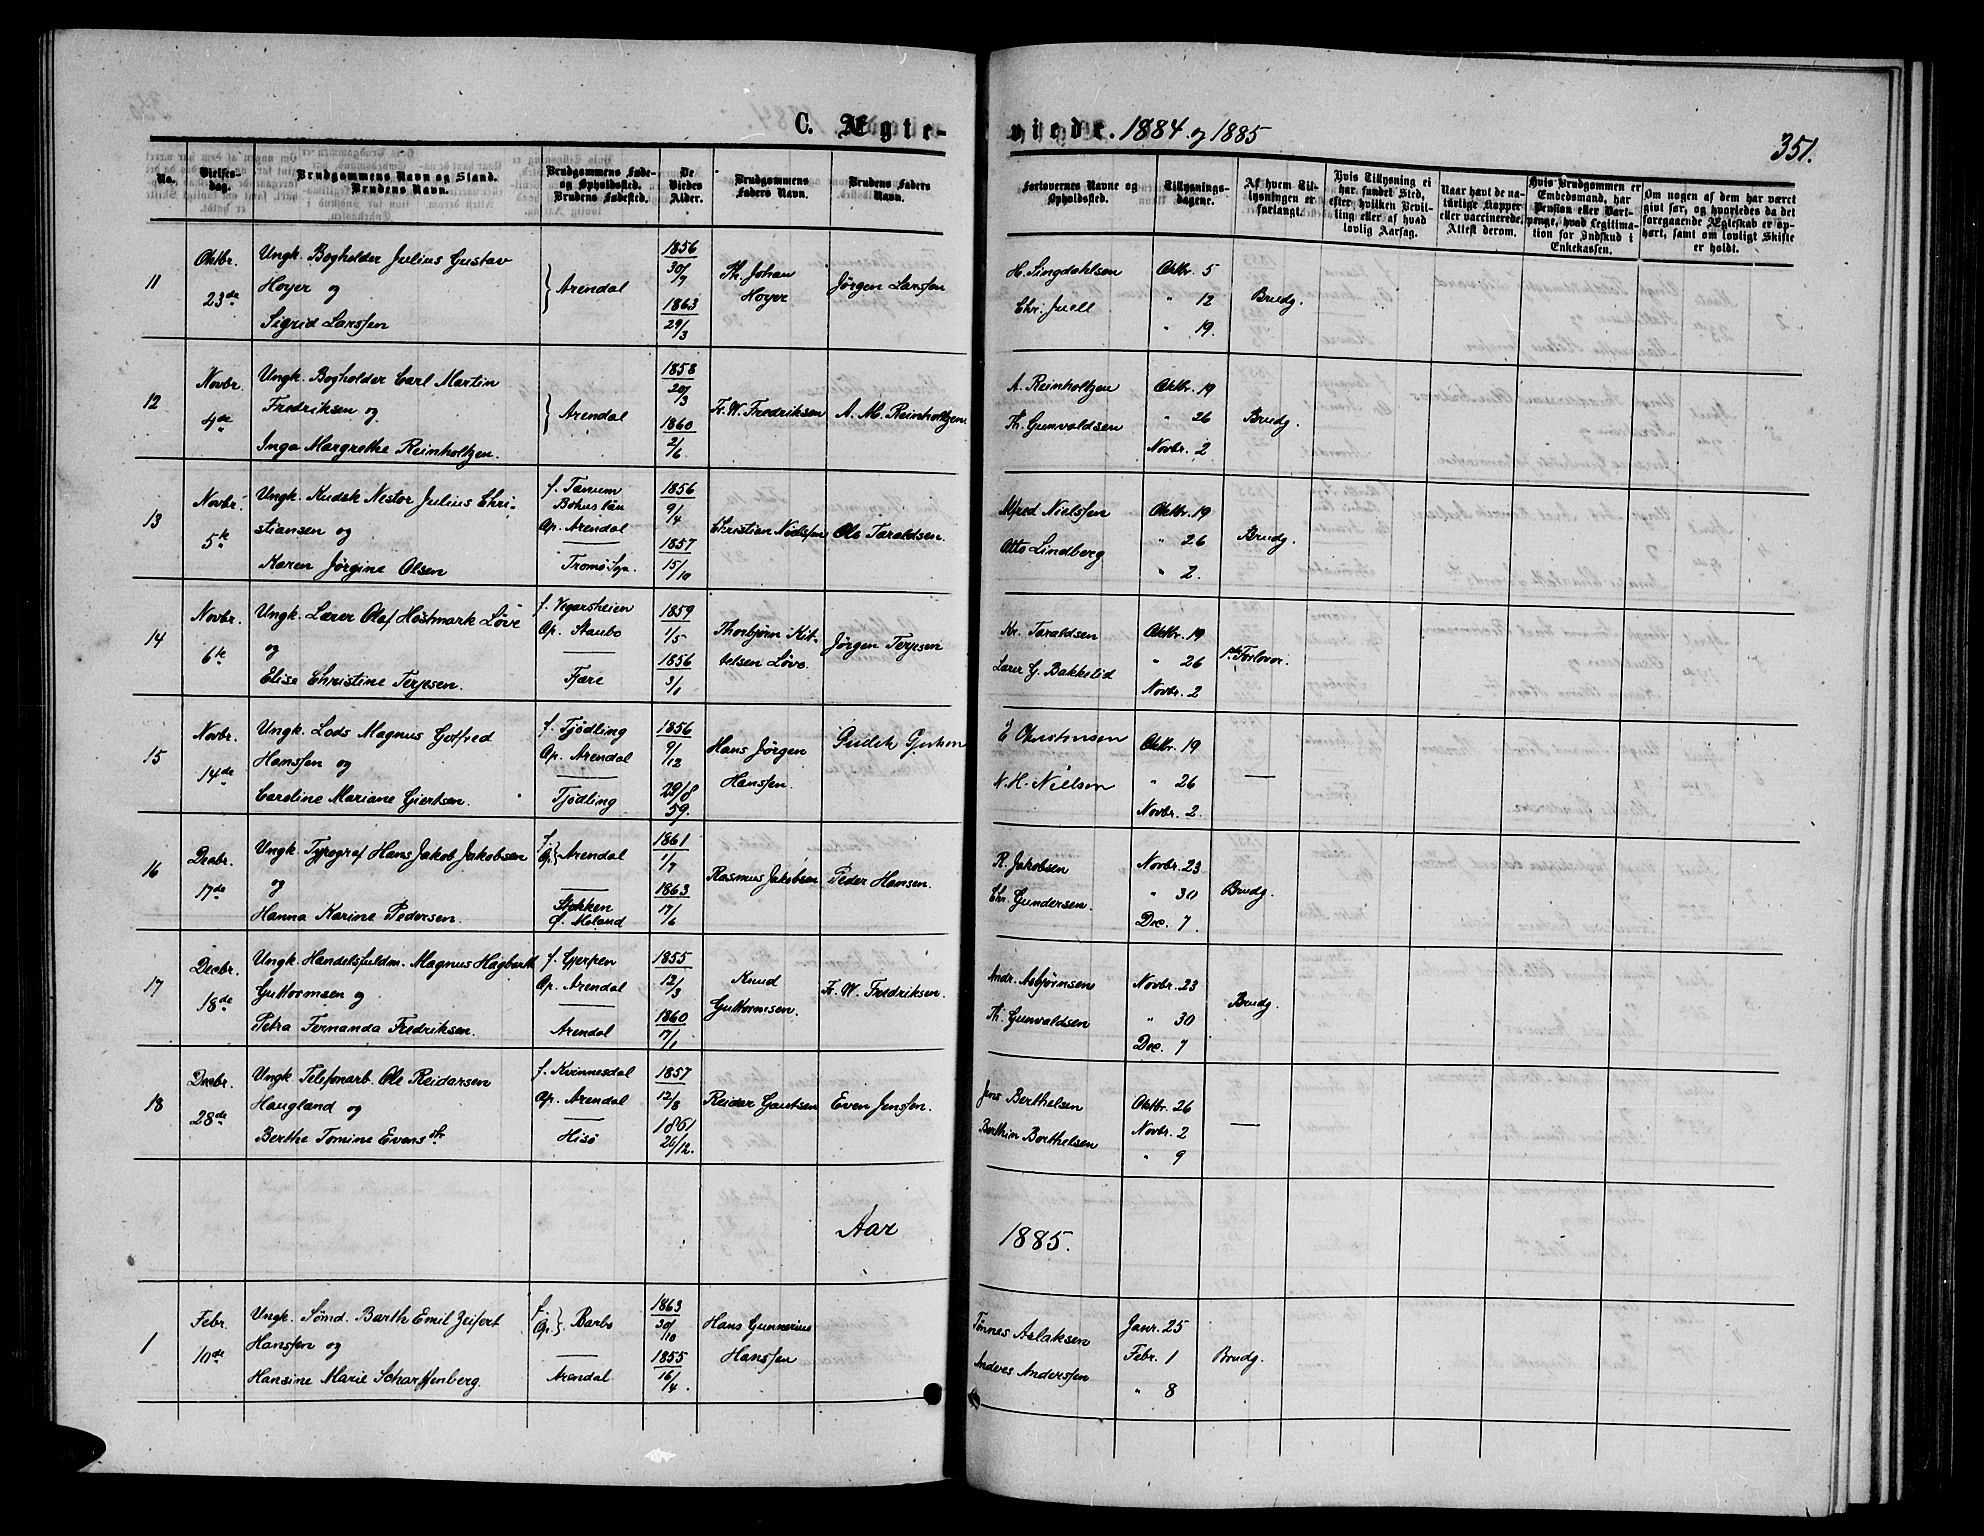 C. Ægte-
viede. 1884 og 1885
351.
No.
Vielses-
dag.
Brudgommens Navn og Stand.
Brudens Navn.
Brudgommens Føde-
og Opholdssted.
Brudens Fødested.
De
Viedes
Alder.
Brudgommens
Faders Navn.
Brudens Faders
Navn.
Forlovernes Navne og
Opholdssted.
Tillysnings-
dagene.
Af hvem Til-
lysningen er
forlangt.
Hvis Tillysning ei
har fundet Sted,
efter hvilken Bevil-
ling eller af hvad
lovlig Aarsag.
Naar havt de na-
turlige Kopper
eller vaccinerede.
Attest derom.
Hvis Brudgommen er
Embedsmand, har
Pension eller Vart-
penge, hvad Legitima-
tion for Indskud i
Enkekassen.
Om nogen af dem har været
gift før, og hvorledes da det
foregaaende Ægteskab er op-
hørt, samt om lovligt Skifte
er holdt.
11
Oktbr.
23de
Ungk. Bogholder Julius Gustav
Hoyer og
Sigrid Larssen
} Arendal
1856
30/7
1863
29/3
Th. Johan
Hoyer
Jørgen Larssen
H. Singdahlsen
Chr. Juell
Oktbr. 5
" 12
" 19.
Brudg.
12
Novbr.
4de
Ungk. Bogholder Carl Martin
Fredriksen og
Inga Margrethe Reinholtzen.
} Arendal
1858
20/3
1860
2/6
Fr. W. Fredriksen
A. M. Reinholtzen.
A. Reinholtzen
Th. Gunvaldsen
Oktbr. 19
" 26
Novbr. 2
Brudg.
13
Novbr.
5te
Ungk. Kudsk Nestor Julius Chri-
stiansen og
Karen Jørgine Olsen
f. Tanum
Bohuslän
Op. Arendal
Tromø Sgn.
1856
9/4
1857
15/10
Christian Nielssen
Ole Taraldsen.
Alfred Nielssen
Otto Lindberg
Oktbr. 19
" 26
" 2.
Brudg.
14
Novbr.
6te
Ungk. Lærer Olaf Hostmark Löve
og
Elise Christine Terjesen.
f. Vegarsheien
Op. Staubo
Fjære
1859
1/5
1856
3/1
Thorbjørn Kit-
telsen Löve.
Jörgen Terjesen
Kr. Taraldsen
Lærer G. Bakkelid
Oktbr. 19
" 26
Novbr. 2
Forlover.
15
Novbr.
14de
Ungk. Lods Magnus Gotfred
Hanssen og
Caroline Mariane Giertsen.
f. Tjödling
Op. Arendal
Tjödling
1856
9/12
29/8
59.
Hans Jörgen
Hanssen.
E Christensen
N. H. Nielsen
Oktbr. 19
" 26
Novbr. 2
16
Decbr.
17de
Ungk. Typograf Hans Jakob Jakobsen
og
Hanna Karine Pedersen.
f.
Op. } Arendal
Stokken
f. Moland
1861
1/7
1863
17/6
Rasmus Jakobsen
Peder Hansen.
R. Jakobsen
Chr. Gundersen.
Novbr. 23
" 30
Dec. 7
Brudg.
17
Decbr.
18de
Ungk. Handelsfuldm. Magnus Hagbarth
Guttormsen og
Petra Fernanda Fredriksen.
f. Gjerpen
Op. Arendal
Arendal
1855
12/3
1860
17/1
Knud
Guttormsen.
Fr. W. Fredriksen.
Andr. Asbjörnsen
Th. Gunvaldsen
Novbr. 23
" 30
Dec. 7
Brudg.
18
Decbr.
28de
Ungk. Telefonarb. Ole Reidarsen
Haugland og
Berthe Tomine Evensdtr
f. Kvinnesdal
Op. Arendal
Hisö
1857
12/8
1861
26/12.
Reidar Gautsen
Even Jenssen.
Jens Berthelsen
Berthin Berthelsen
Oktbr. 26
Novbr. 2
" 9
Aar
1885.
1
Febr.
10de
Ungk. Sömd. Barth Emil Zeifert
Hanssen og
Hansine Marie Scharffenberg.
f.
Op. } Barbo
Arendal
1863
30/10
1855
16/4
Hans Gunnerius
Hanssen
Tönnes Aslaksen
Anders Anderssen
Janr. 25
Febr. 1
" 8
Brudg.